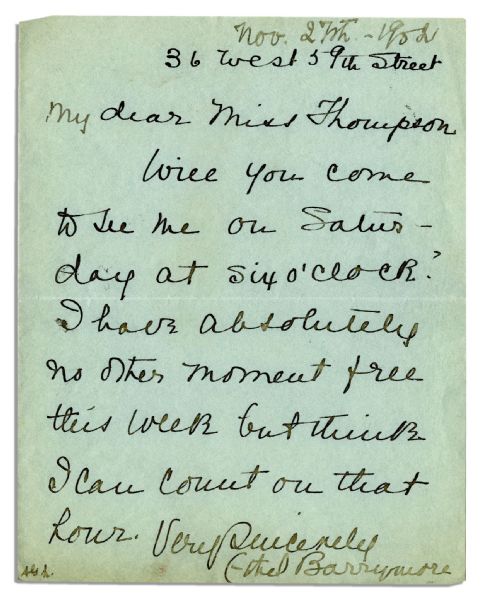 Nov. 27th - 1902
36 West 59th Street
My dear Miss Thompson
Will you come
to see me on Satur-
day at six o'clock?
I have absolutely
no other moment free
this week but think
I can count on that
hour. Very Sincerely
Ethel Barrymore